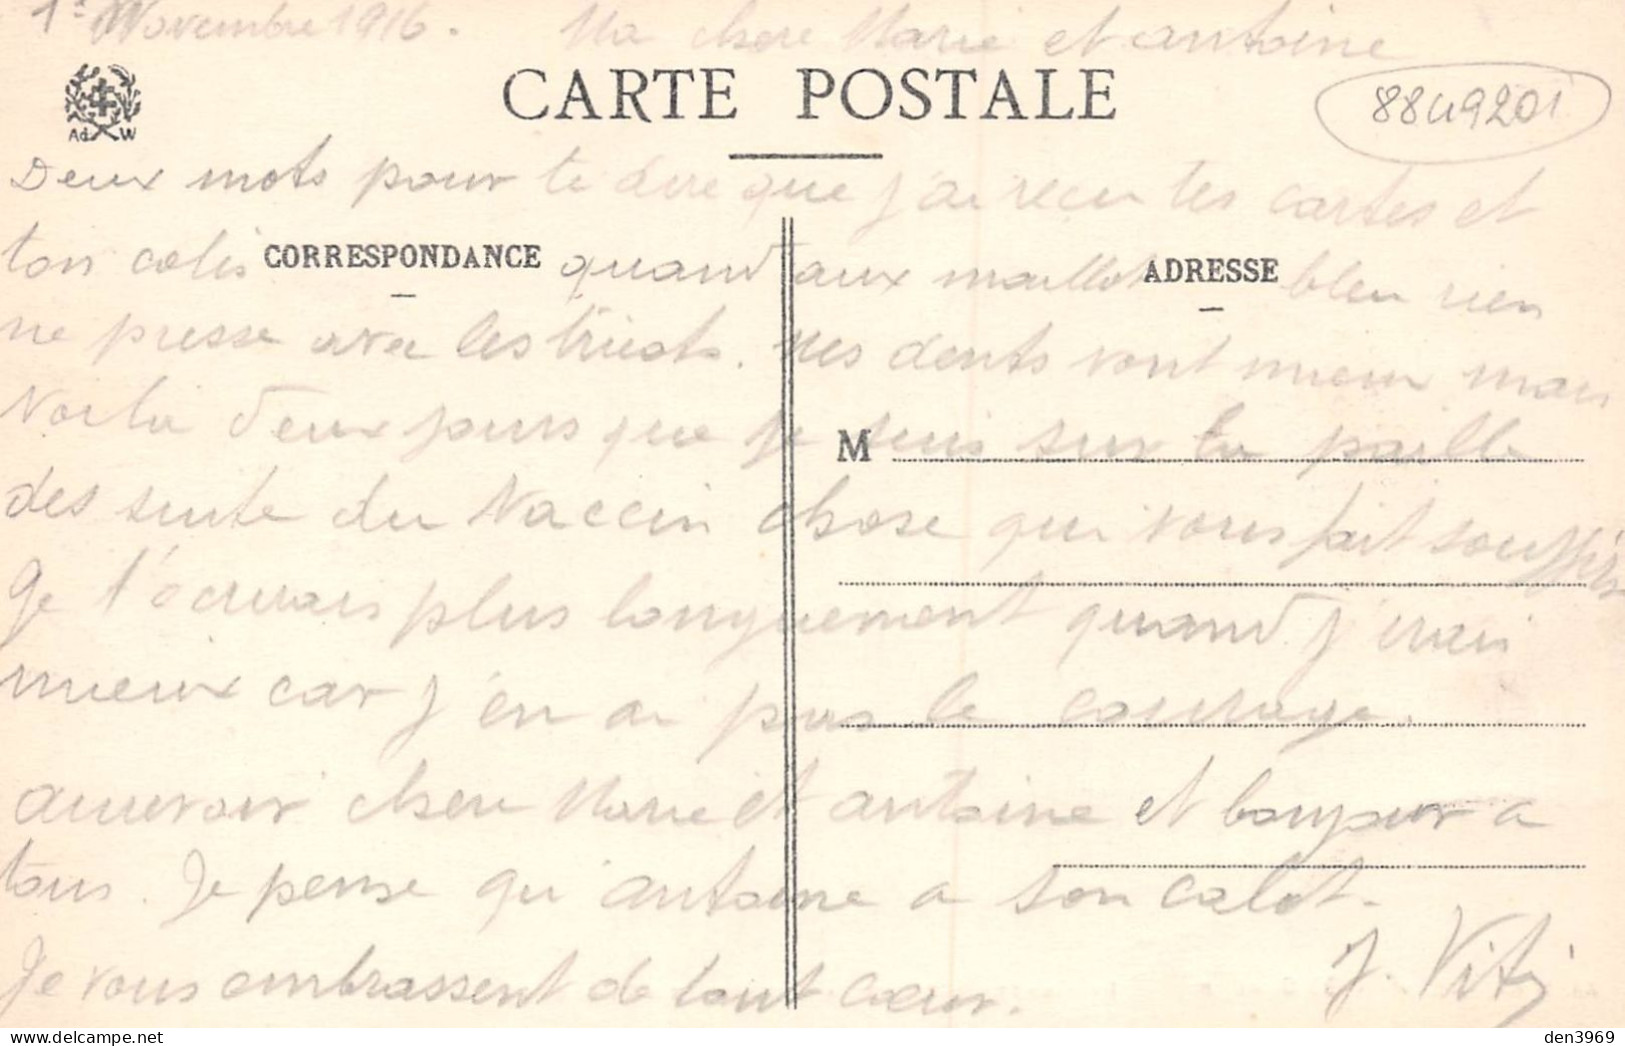 1e Novembre 1916. Ma chere Marie et antoine
CARTE POSTALE
8849201
Ad W
Deux mots pour te dire que j'ai recu tes cartes et
ton colis CORRESPONDANCE quand aux maillot ADRESSE bleu rien
ne presse avec les tricots. Mes dents vont mieux mais
Voila deux jours que je suis sur la paille
M
des suite du Vaccin chose qui vous fait souffrir
Je t'ecrirais plus longuement quand j'irai
mieux car j'en ai pas le courage.
aurevoir chere Marie et antoine et bonjour a
tous. Je pense qu'antoine a son calot.
Je vous embrassent de tout cœur.
J. Viti
den3969